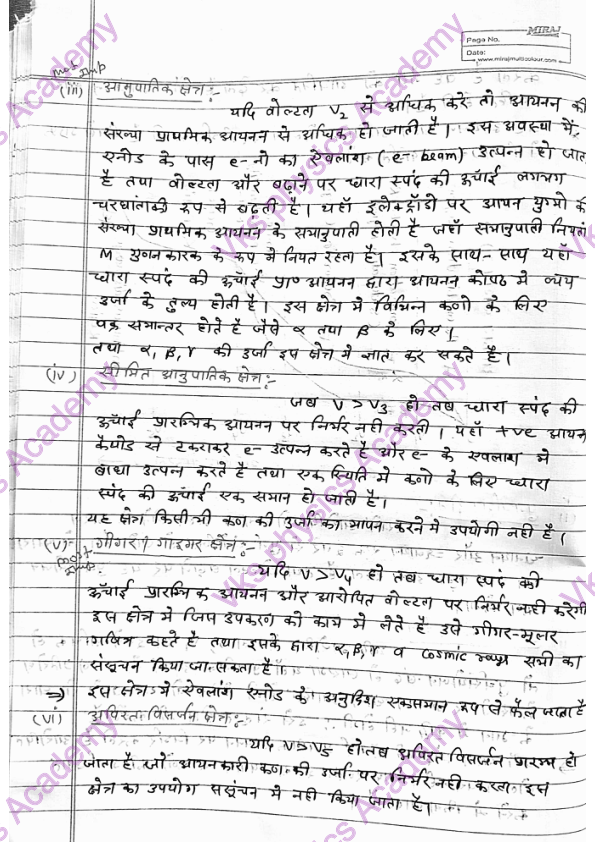 MIRAJ
Page No.
Date:
www.mirajmulticolour.com
Most Imp
(iii) आनुपातिक क्षेत्र :-
यदि वोल्टता V₂ से अधिक करे तो आयनन की
संख्या प्राथमिक आयनन से अधिक हो जाती है। इस अवस्था में,
एनोड के पास e- नो का ऐवलांश (e- beam) उत्पन्न हो जात
है तथा वोल्टता और बढ़ाने पर धारा स्पंद की ऊँचाई लगभग
चरघातांकी रूप से बढ़ती है। यहाँ इलेक्ट्रॉडो पर आयन युग्मो की
संख्या प्राथमिक आयनन के समानुपाती होती है जहाँ समानुपाती नियतां
M गुणनकारक के रूप में नियत रहता है। इसके साथ-साथ यहाँ
धारा स्पंद की ऊंचाई प्रा० आयनन द्वारा आयनन कोष्ठ मे व्यय
उर्जा के तुल्य होती है। इस क्षेत्र मे विभिन्न कणो के लिए
वक्र समान्तर होते है जैसे α तथा β के लिए।
तथा α, β, γ की उर्जा इस क्षेत्र मे ज्ञात कर सकते है।
(iv) सीमित आनुपातिक क्षेत्र:-
जब V > V₃ हो तब धारा स्पंद की
ऊँचाई प्रारम्भिक आयनन पर निर्भर नही करती। यहाँ +ve आयन
कैथोड से टकराकर e- उत्पन्न करते है और e- के ऐवलांश मे
बाधा उत्पन्न करते है तथा एक स्थिति मे कणो के लिए धारा
स्पंद की ऊँचाई एक समान हो जाती है।
यह क्षेत्र किसी भी कण की उर्जा का मापन करने मे उपयोगी नही है।
(v) गीगर / गाइगर क्षेत्र:-
most Imp.
यदि V > V₄ हो तब धारा स्पंद की
ऊँचाई प्रारम्भिक आयनन और आरोपित वोल्टता पर निर्भर नही करेगी
इस क्षेत्र मे जिस उपकरण को काम मे लेते है उसे गीगर-मूलर
गणित्र कहते है तथा इसके द्वारा α, β, γ व cosmic rays सभी का
संसूचन किया जा सकता है
⇒ इस क्षेत्र मे ऐवलांश एनोड के अनुदिश एकसमान रूप से फैल जाता है
(vi) अविरत विसर्जन क्षेत्र:-
यदि V>V₅ हो तब अविरत विसर्जन प्रारम्भ हो
जाता है जो आयनकारी कण की उर्जा पर निर्भर नही करता इस
क्षेत्र का उपयोग संसूचन मे नही किया जाता है।
Vks physics Academy